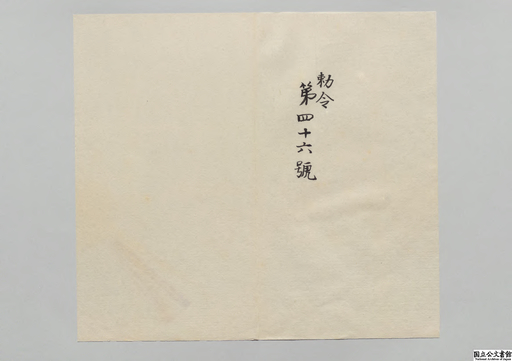 勅令
第四十六號
国立公文書館
National Archives of Japan